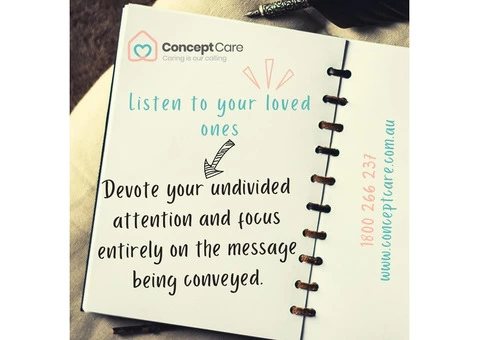 Concept Care
Caring is our calling
Listen to your loved
ones
Devote your undivided
attention and focus
entirely on the message
being conveyed.
1800 266 237
www.conceptcare.com.au